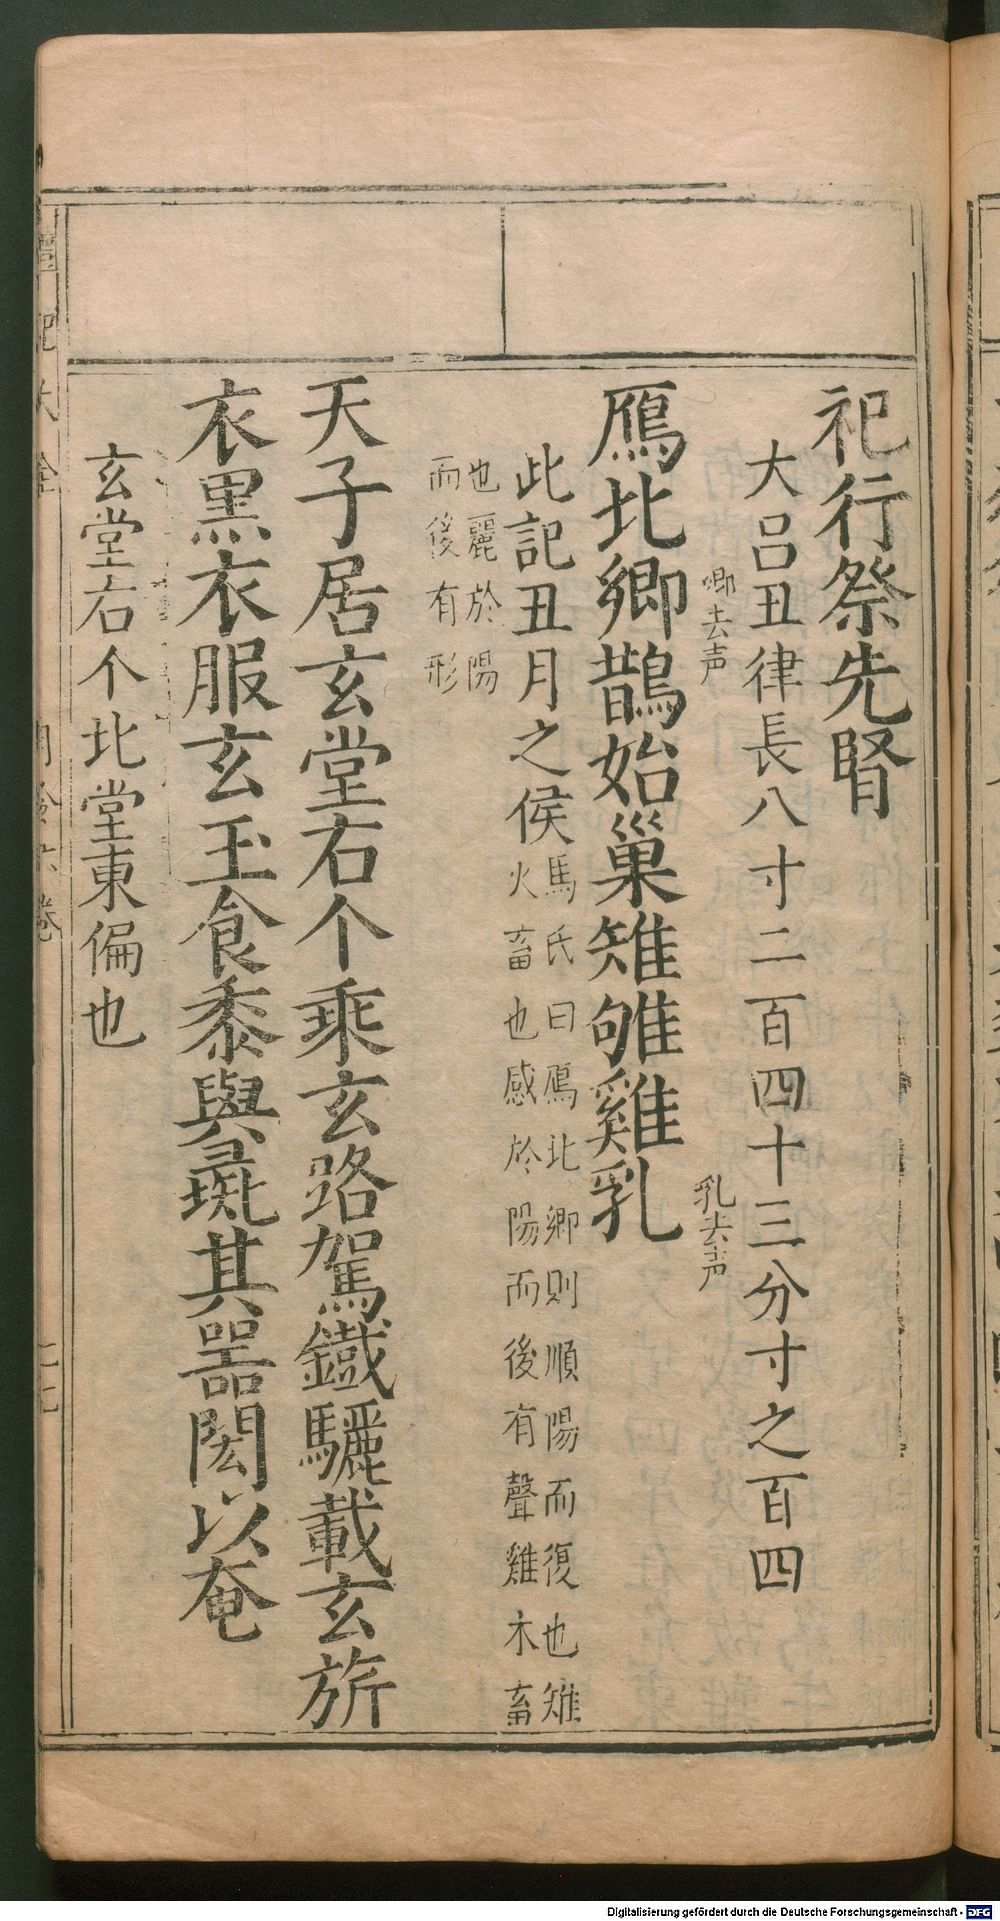 祀行祭先腎
大呂丑律長八寸二百四十三分寸之百四
鄉去声
乳去声
鴈北鄉鵲始巢雉雊雞乳
此記丑月之侯
馬氏曰鴈北鄉則順陽而復也雉
火畜也感於陽而後有聲雞木畜
也麗於陽
而後有形
天子居玄堂右个乘玄路駕鐵驪載玄旂
衣黑衣服玄玉食黍與彘其器閎以奄
玄堂右个北堂東偏也
月令六卷
Digitalisierung gefördert durch die Deutsche Forschungsgemeinschaft - DFG